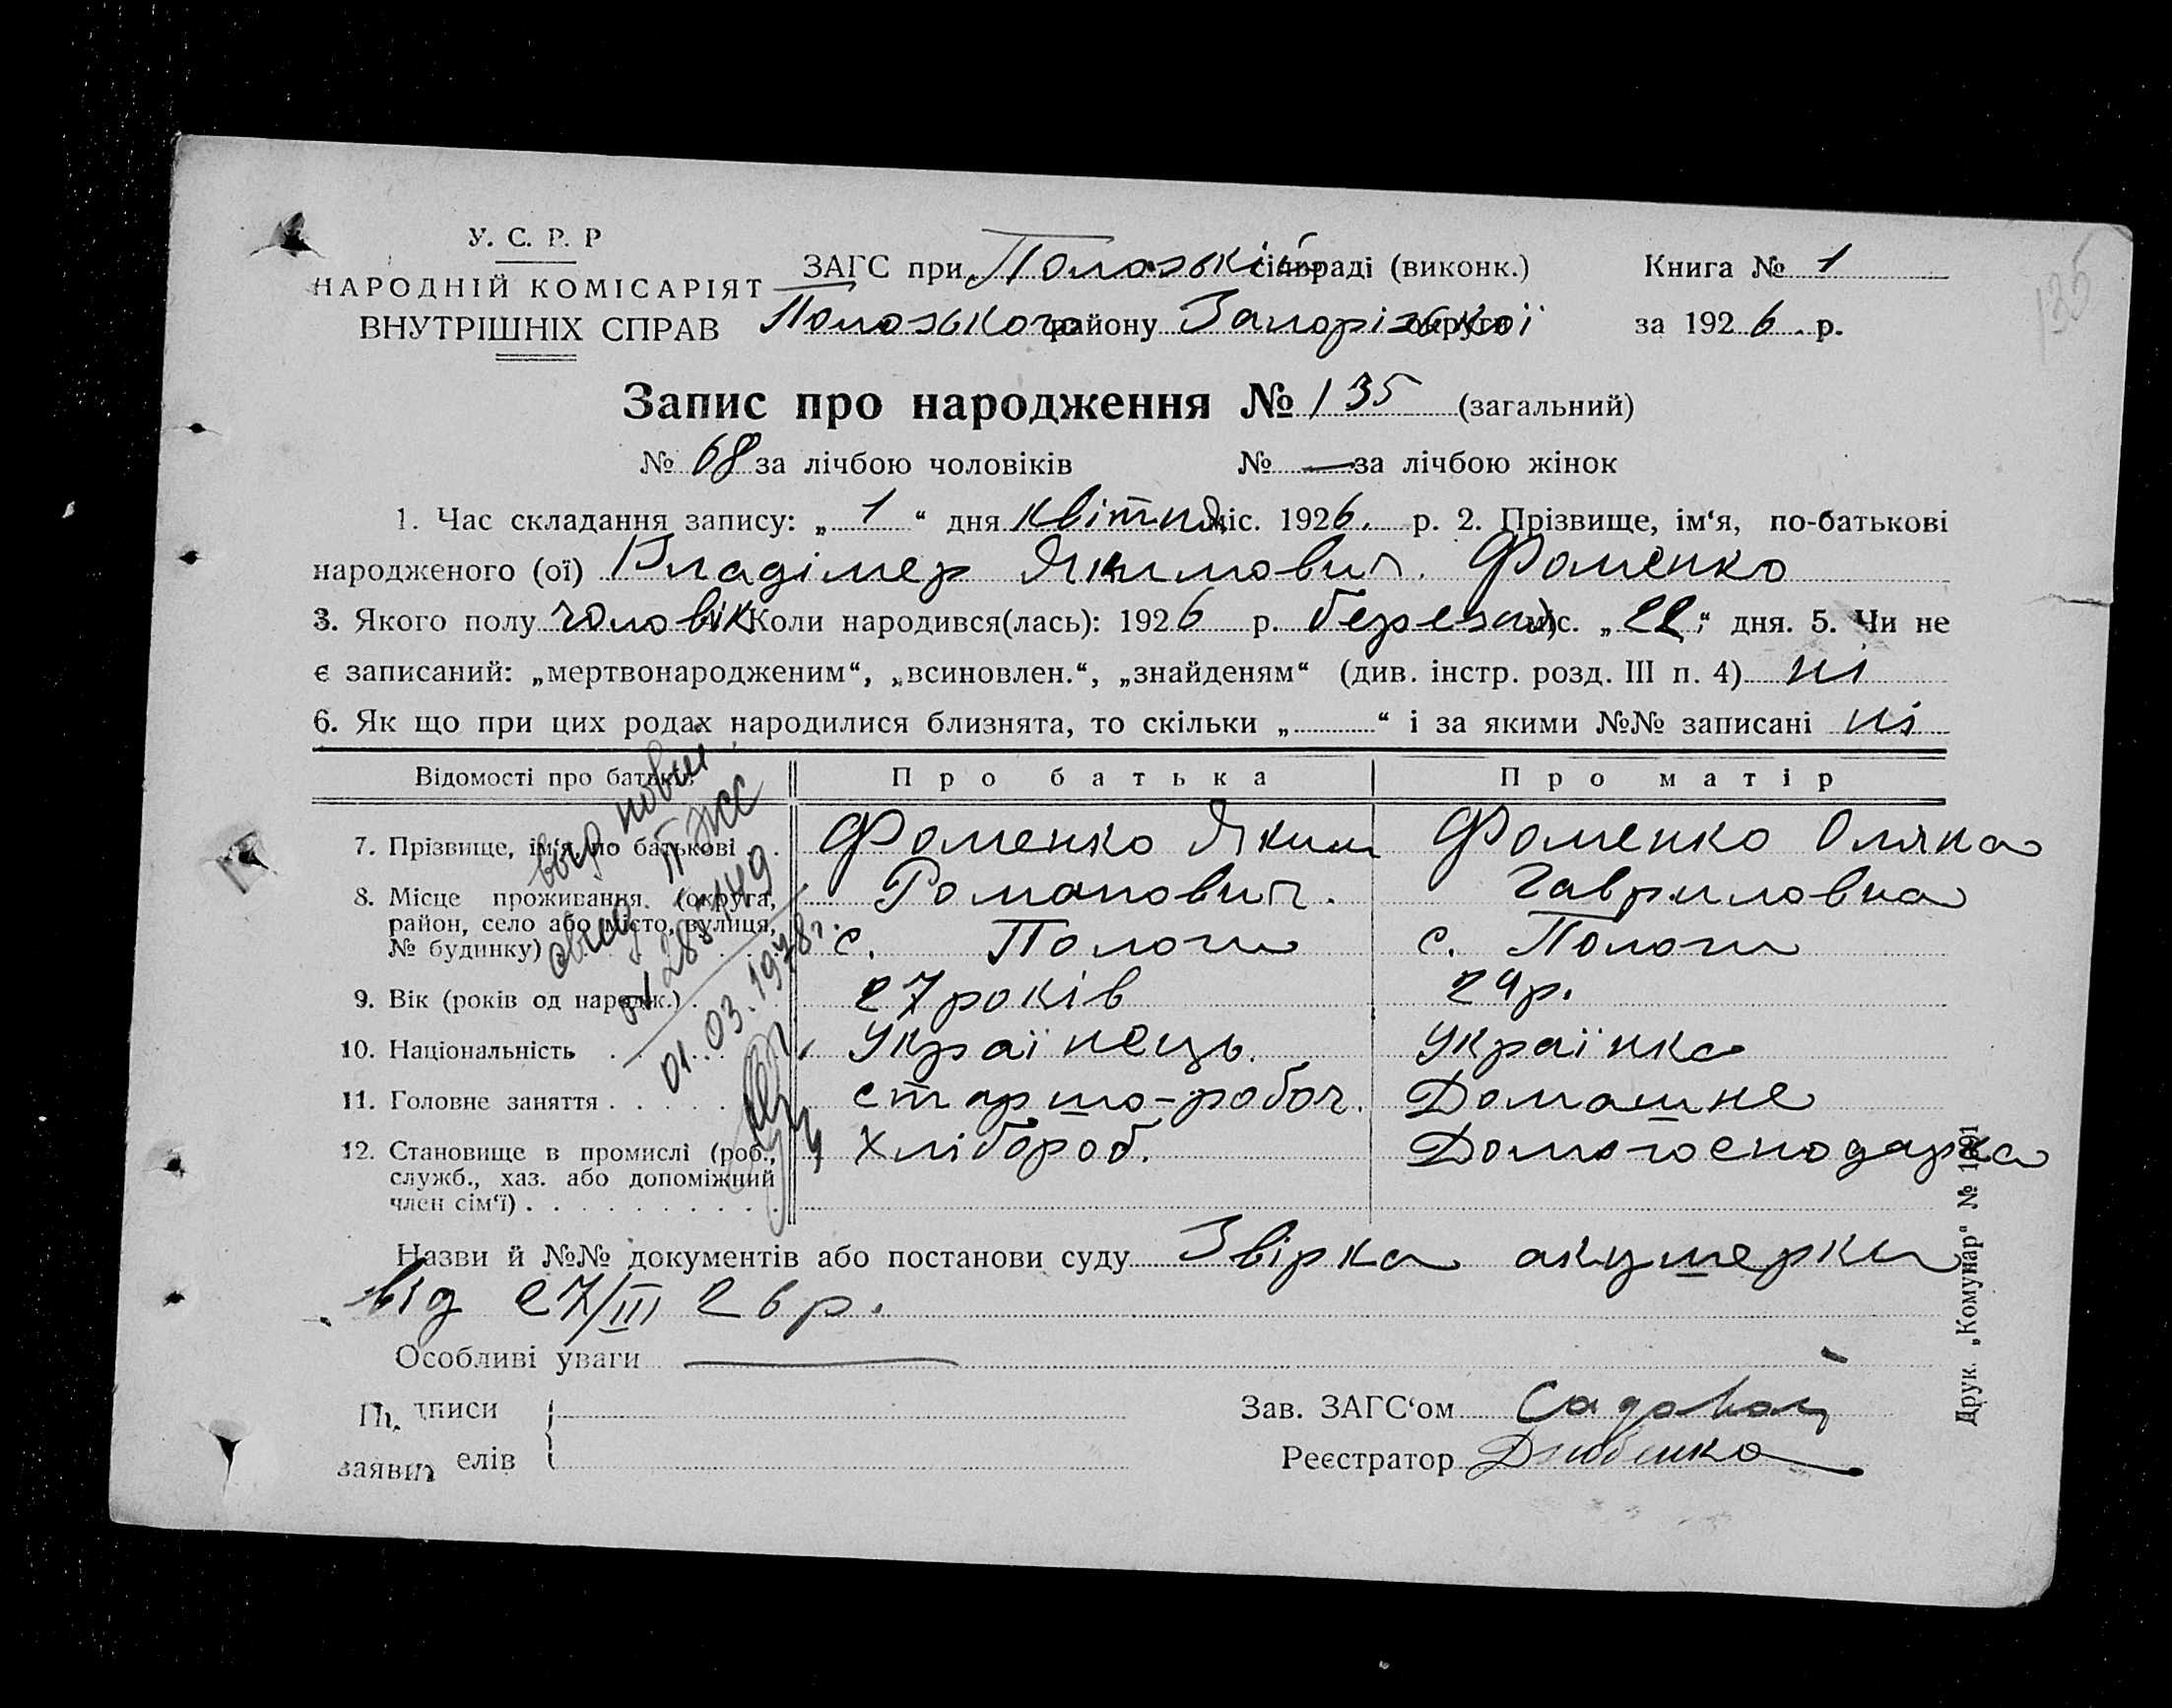 У. С. Р. Р
НАРОДНІЙ КОМІСАРІЯТ
ВНУТРІШНІХ СПРАВ
ЗАГС при Полозькій сільраді (виконк.) Книга № 1
Полозького району Запорізької округи за 1926 р.
135
Запис про народження № 135 (загальний)
№ 68 за лічбою чоловіків № — за лічбою жінок
1. Час складання запису: „ 1 “ дня квітня міс. 1926. р. 2. Прізвище, ім‘я, по-батькові
народженого (ої) Владімер Якимович. Фоменко
3. Якого полу чоловік Коли народився(лась): 1926 р. березня міс. „ 22 “ дня. 5. Чи не
є записаний: „мертвонародженим“, „всиновлен.“, „знайденям“ (див. інстр. розд. III п. 4) ні
6. Як що при цих родах народилися близнята, то скільки „ “ і за якими №№ записані ні
Відомості про батьків Про батька Про матір
7. Прізвище, ім‘я, по батькові . . Фоменко Яким Фоменко Оляна
Романович. Гавриловна
8. Місце проживання (округа,
район, село або місто, вулиця,
№ будинку) с. Пологи с. Пологи
9. Вік (років од народж.) . 27 років 24р.
10. Національність Українець. Українка
11. Головне заняття . . . . . старшо-робоч. Домашне
12. Становище в промислі (роб., Хлібороб. Домогосподарка
служб., хаз. або допоміжний
член сім‘ї) . . . . . . . . . .
выд повт
II ЖС
№ 287449
01.03.1978г.
Назви й №№ документів або постанови суду Звірка акушерки
від 27/III 26р.
Особливі уваги —
Підписи
заявителів
Зав. ЗАГС‘ом Садовой
Реєстратор Дзюбенко
Друк. „Комунар“ №